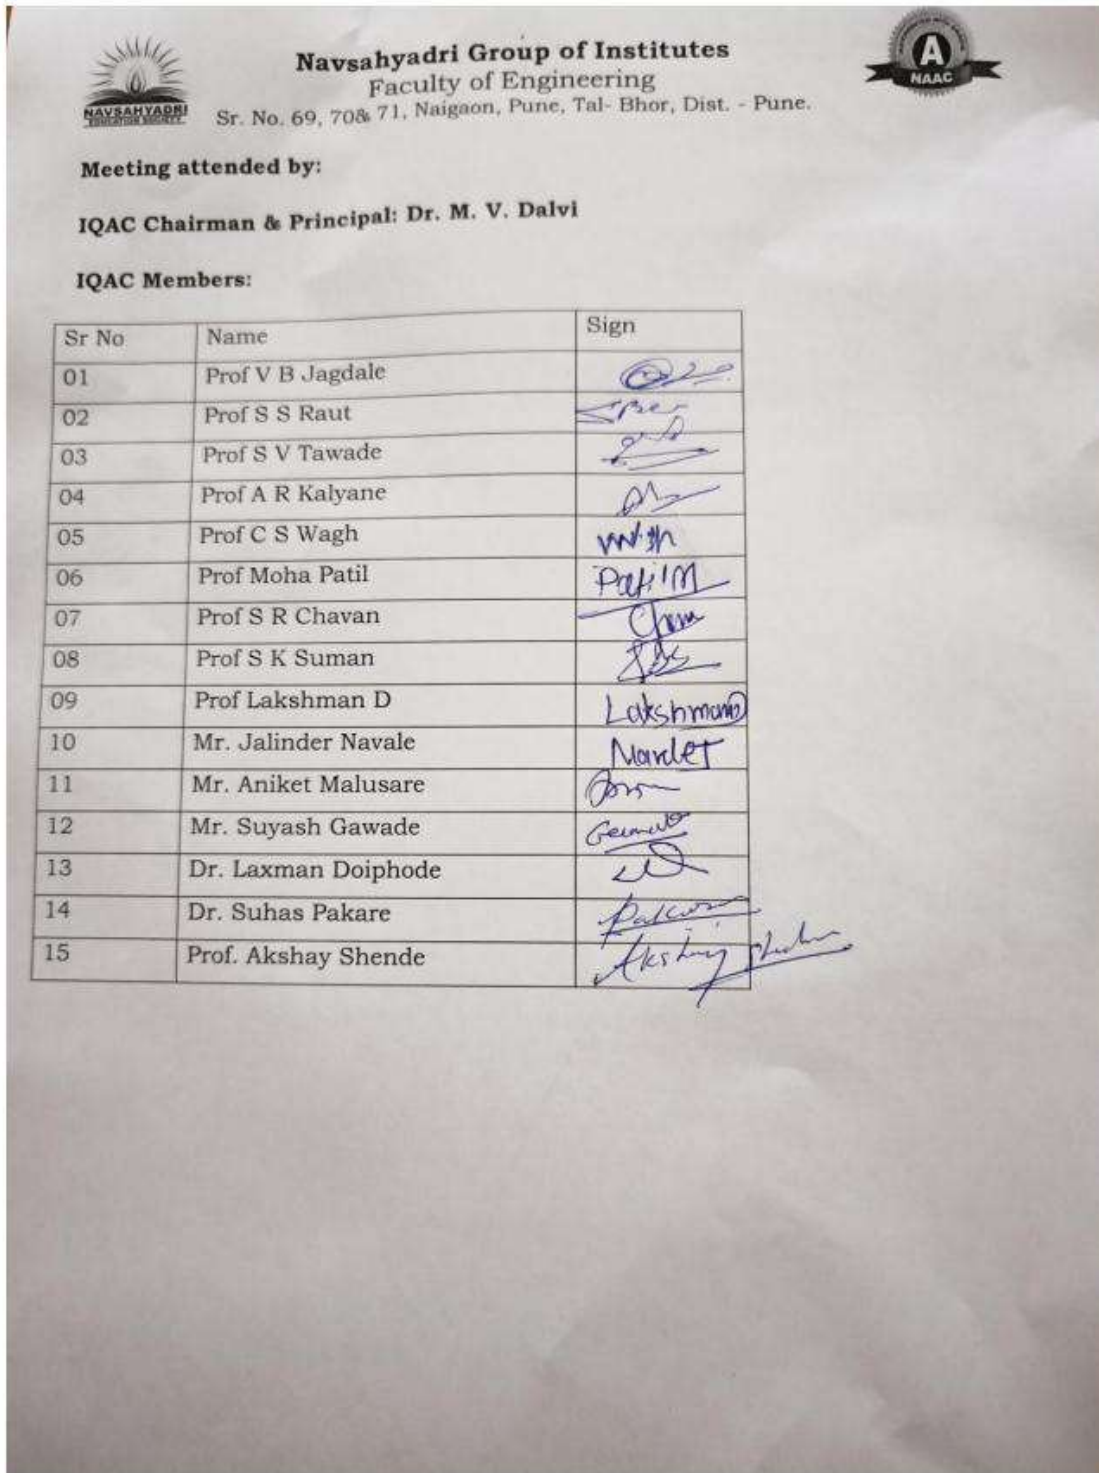 Navsahyadri Group of Institutes
Faculty of Engineering
Sr. No. 69, 70& 71, Naigaon, Pune, Tal- Bhor, Dist. - Pune.
NAVSAHYADRI
EDUCATION SOCIETY
A
NAAC
Meeting attended by:
IQAC Chairman & Principal: Dr. M. V. Dalvi
IQAC Members:
Sr No Name Sign
01 Prof V B Jagdale
02 Prof S S Raut
03 Prof S V Tawade
04 Prof A R Kalyane
05 Prof C S Wagh
06 Prof Moha Patil Patil M
07 Prof S R Chavan
08 Prof S K Suman
09 Prof Lakshman D Lakshman D
10 Mr. Jalinder Navale
11 Mr. Aniket Malusare
12 Mr. Suyash Gawade
13 Dr. Laxman Doiphode
14 Dr. Suhas Pakare
15 Prof. Akshay Shende Akshay